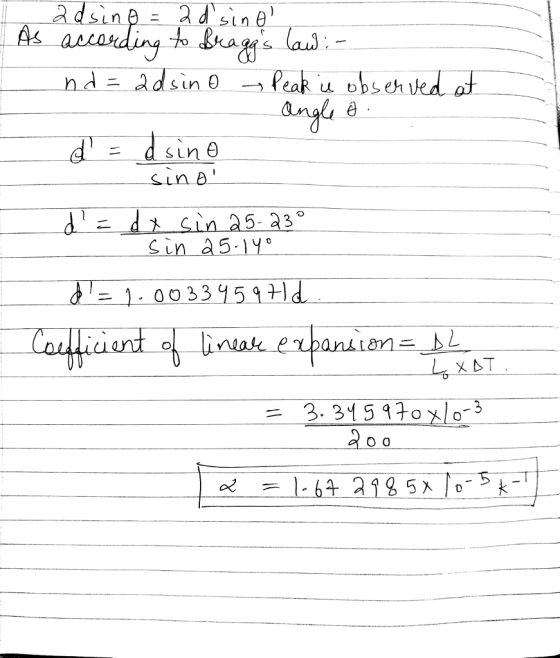 2dsinθ = 2d'sinθ'
As according to Bragg's law:-
nd = 2dsinθ → Peak is observed at
angle θ.
d' = d sinθ
sinθ'
d' = d x sin 25.23°
sin 25.14°
d' = 1.003345971d.
Coefficient of linear expansion = ΔL
L₀ x ΔT.
= 3.345970x10-3
200
α = 1.672985x10-5 k-1